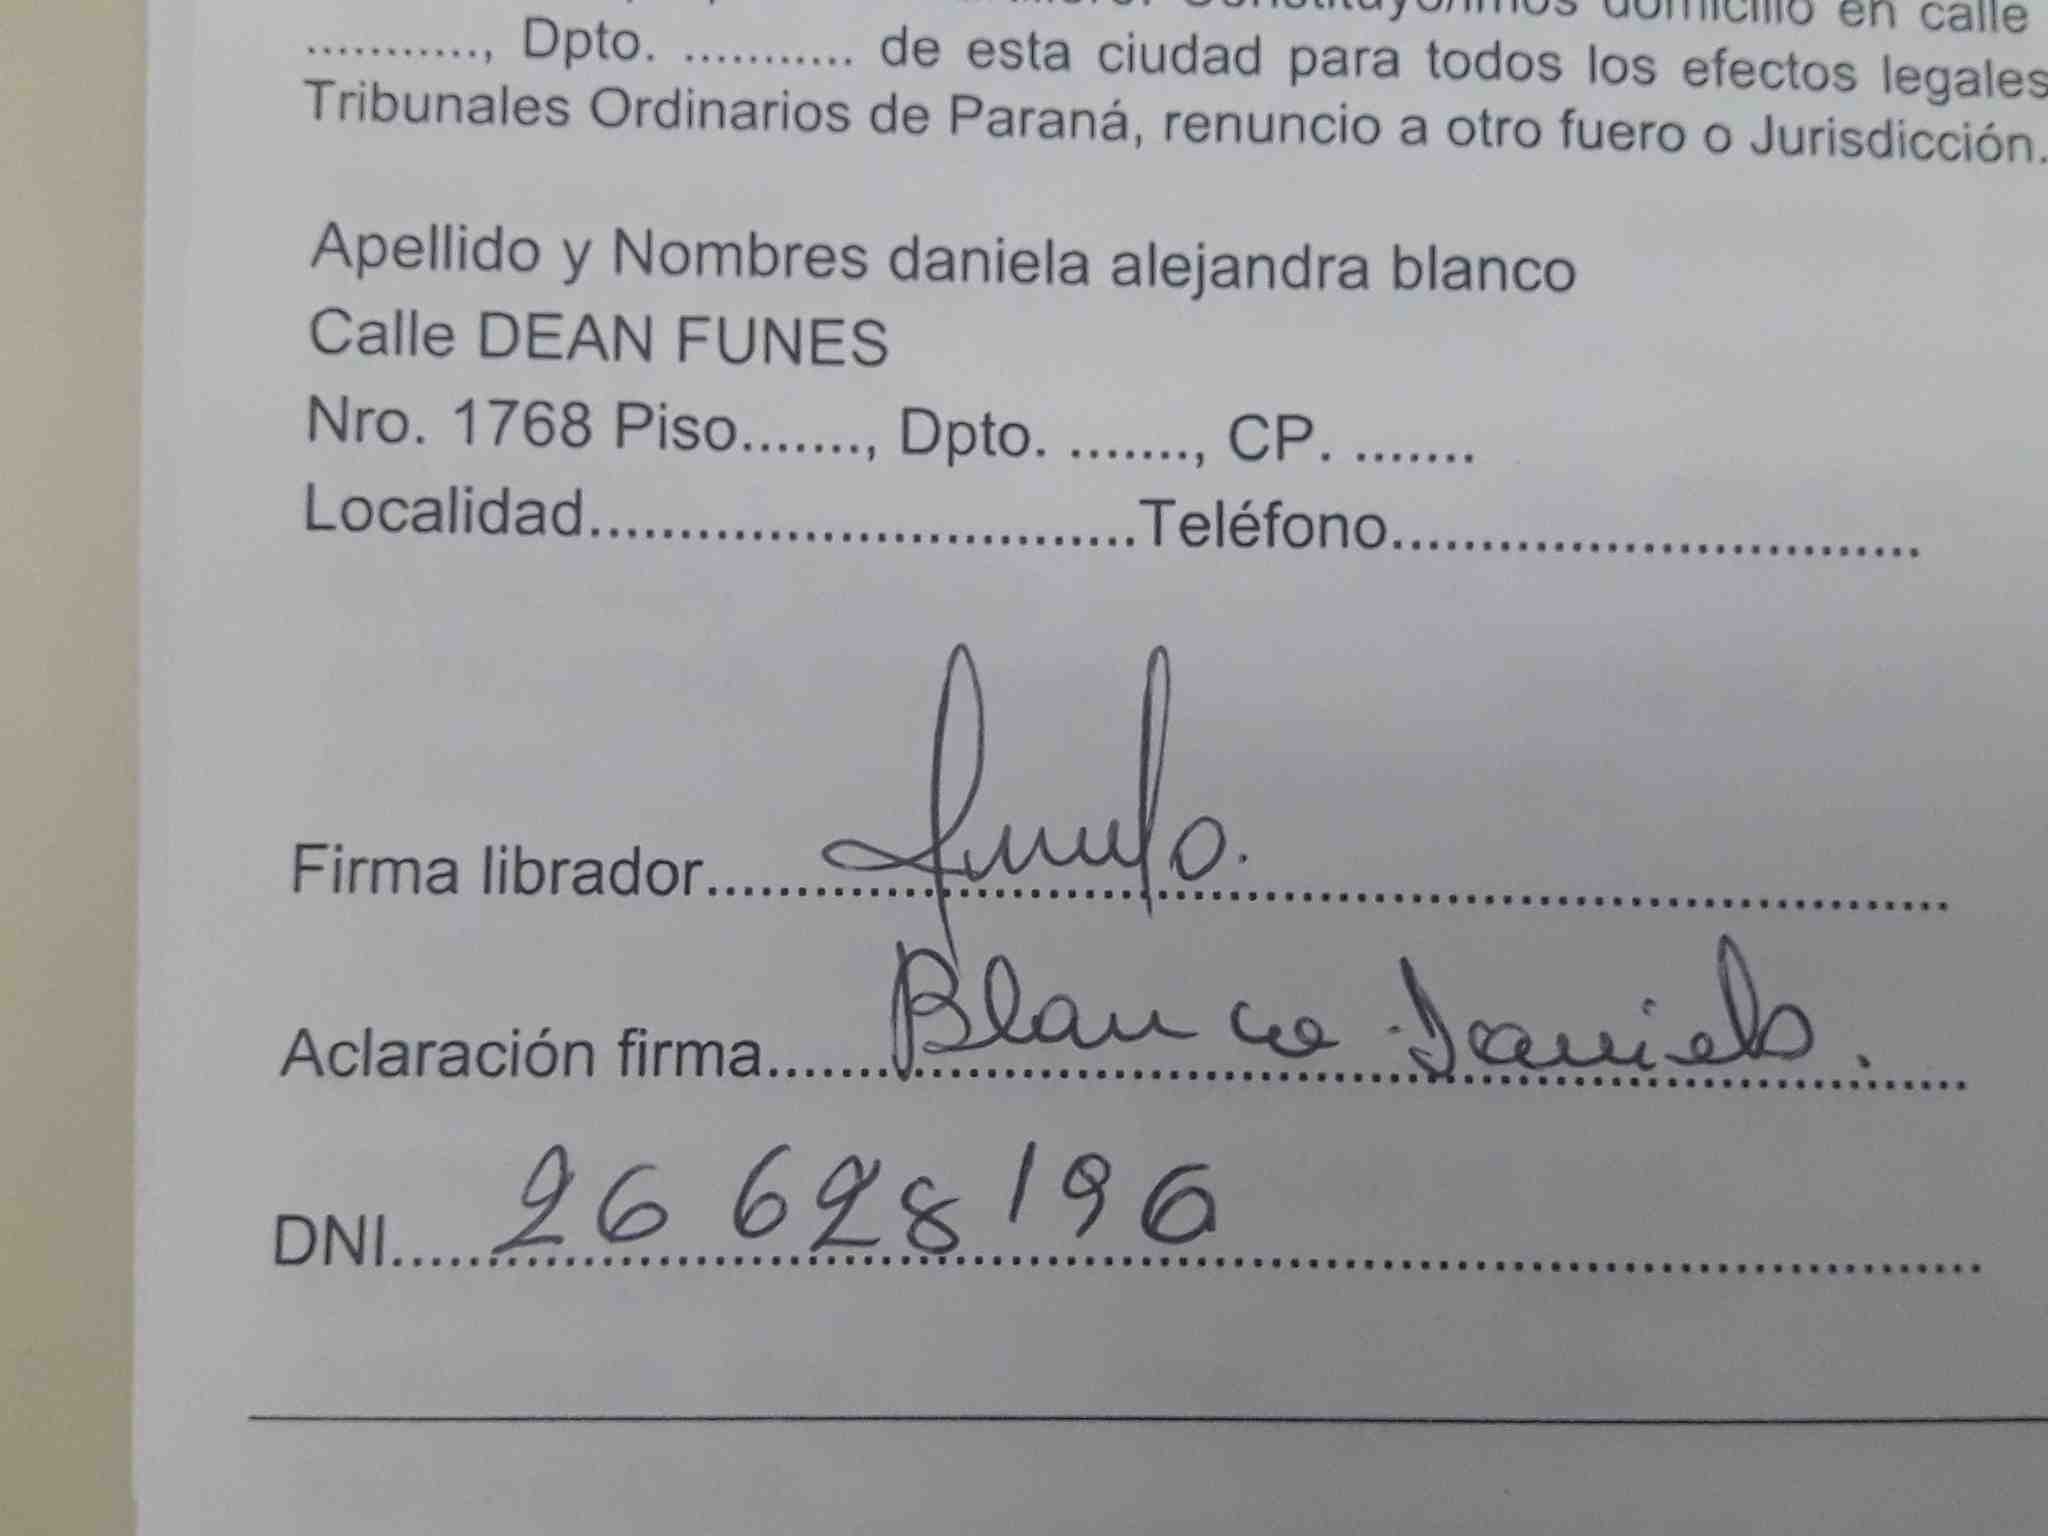 domicilio en calle
............, Dpto. ........... de esta ciudad para todos los efectos legales
Tribunales Ordinarios de Paraná, renuncio a otro fuero o Jurisdicción.
Apellido y Nombres daniela alejandra blanco
Calle DEAN FUNES
Nro. 1768 Piso......., Dpto. ......., CP. .......
Localidad...............................Teléfono..............................
Firma librador......................................................................
Aclaración firma.......Blanco Daniela.
DNI.....26 628 196